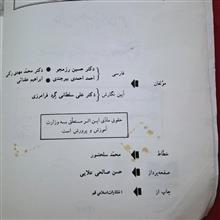 دکتر حسین رزمجو ● دکتر محمّد مهدی رکنی
مؤلفان فارسی { احمد احمدی بیرجندی ● ابراهیم عقدائی
آیین نگارش { دکتر علی سلطانی گرد فرامرزی
حقوق مادّی این اثر متعلق به وزارت
آموزش و پرورش است
خطاط محمّد سلحشور
صفحه‌پرداز حسن صالحی علایی
چاپ از انتشارات اسلامی قم